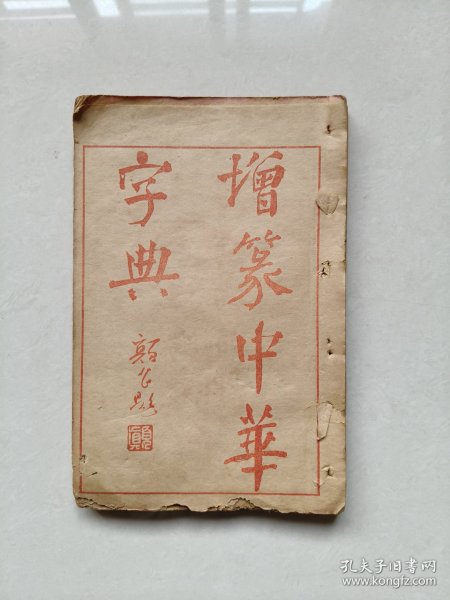 增篆中華
字典
孔夫子旧书网
www.kongfz.com